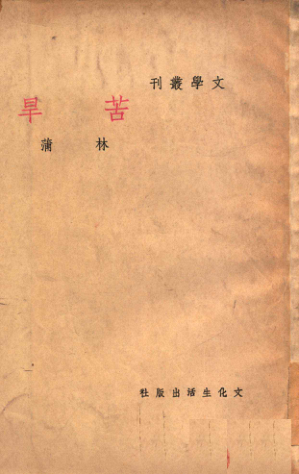 文學叢刊
苦旱
林蒲
文化生活出版社